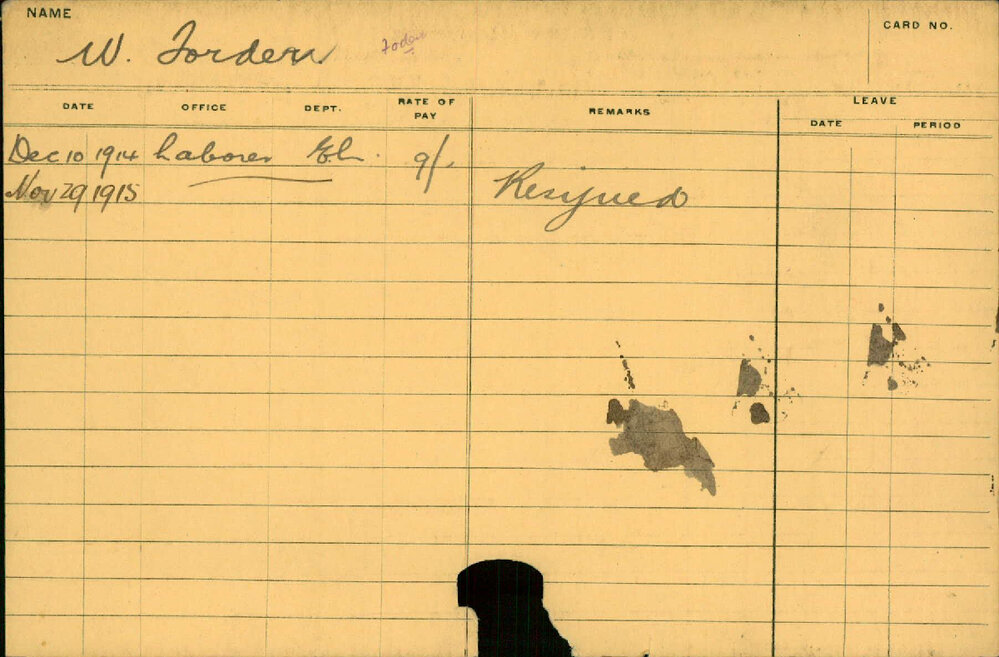 NAME
CARD NO.
W. Forden Foden
DATE OFFICE DEPT. RATE OF PAY REMARKS LEAVE
DATE PERIOD
Dec 10 1914 Laborer El. 9/.
Nov 29 1915 Resigned